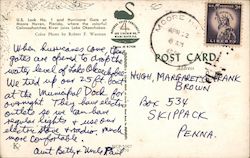 U.S. Lock No. 1 and Hurricane Gate at
Moore Haven, Florida, where the colorful
Caloosahatchee River joins Lake Okeechobee.
Color Photo by Robert F. Warner
When hurricanes come, these
gates are opened to drop the
water level of Lake Okeechobee.
We tied up our 25 ft boat
at the Municipal Dock for
overnight. They have electric
outlets so we can have
regular lights & use our
electric stove & radio, much
more comfortable.
Aunt Betty & Uncle Phil
MOORE HAVEN
POST CARD
HUGH, MARGARET & FRANK
BROWN
Box 534
SKIPPACK
PENNA.